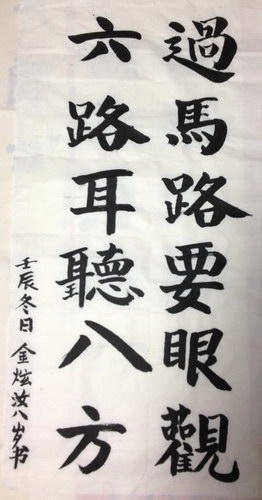 過馬路要眼觀
六路耳聽八方
壬辰冬日 金炫汝八岁书